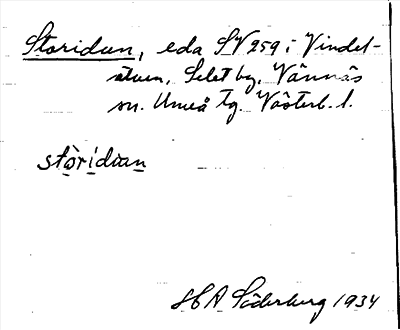 Storidan, eda SV 259 i Vindel-
älven, Selet by, Vännäs
sn. Umeå tg. Västerb. l.
stòridian
H A Söderberg 1934